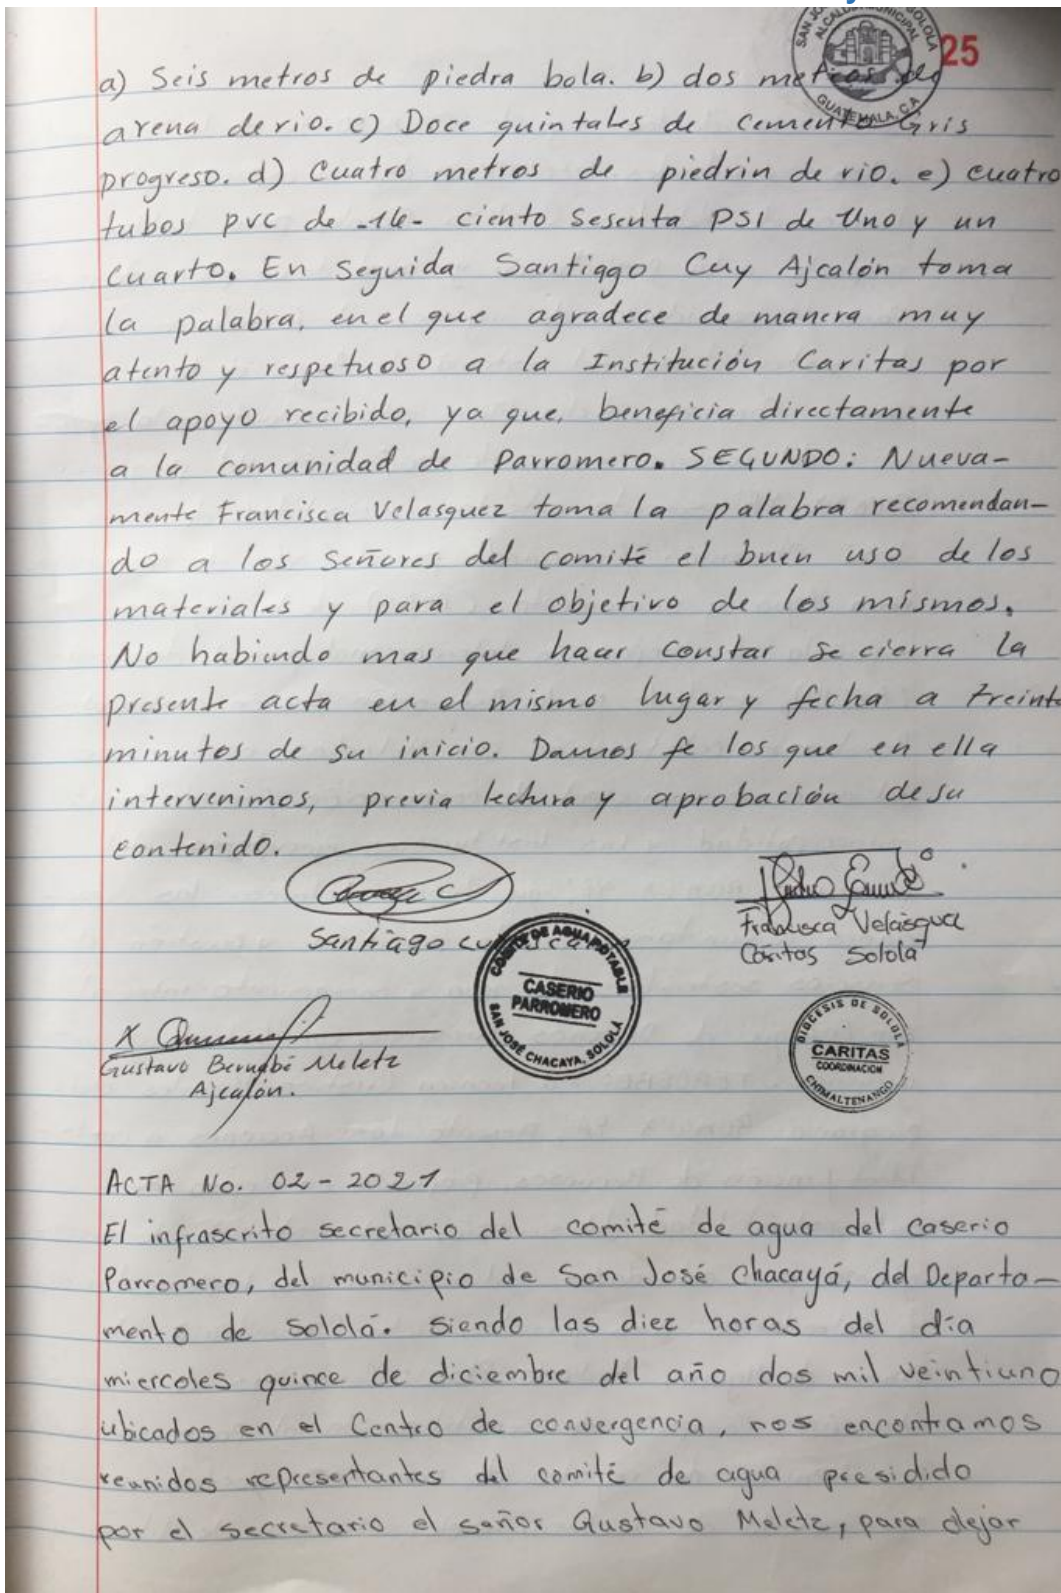 SAN JO SOLOLA
ALCALDIA MUNICIPAL
GUATEMALA, C.A.
25
a) Seis metros de piedra bola. b) dos metros de
arena de rio. c) Doce quintales de cemento Gris
progreso. d) Cuatro metros de piedrin de rio. e) cuatro
tubos pvc de -16- ciento Sesenta PSI de Uno y un
cuarto. En Seguida Santiago Cuy Ajcalón toma
la palabra, en el que agradece de manera muy
atento y respetuoso a la Institución Caritas por
el apoyo recibido, ya que, beneficia directamente
a la comunidad de Parromero. SEGUNDO: Nueva-
mente Francisca Velasquez toma la palabra recomendan-
do a los Señores del comité el buen uso de los
materiales y para el objetivo de los mismos.
No habiendo mas que hacer constar se cierra la
presente acta en el mismo lugar y fecha a treinta
minutos de su inicio. Damos fe los que en ella
intervenimos, previa lectura y aprobación de su
contenido.
Santiago
Francisca Velásquez
Cáritas Sololá
COMITE DE AGUA POTABLE
CASERIO
PARROMERO
SAN JOSÉ CHACAYA, SOLOLÁ
X
Gustavo Bernabé Meletz
Ajcalón.
DIOCESIS DE SOLOLA
CARITAS
COORDINACION
CHIMALTENANGO
ACTA No. 02-2021
El infrascrito secretario del comité de agua del caserio
Parromero, del municipio de San José Chacayá, del Departa-
mento de Sololá. Siendo las diez horas del día
miercoles quince de diciembre del año dos mil veintiuno
ubicados en el Centro de convergencia, nos encontramos
reunidos representantes del comité de agua presidido
por el secretario el señor Gustavo Meletz, para dejar